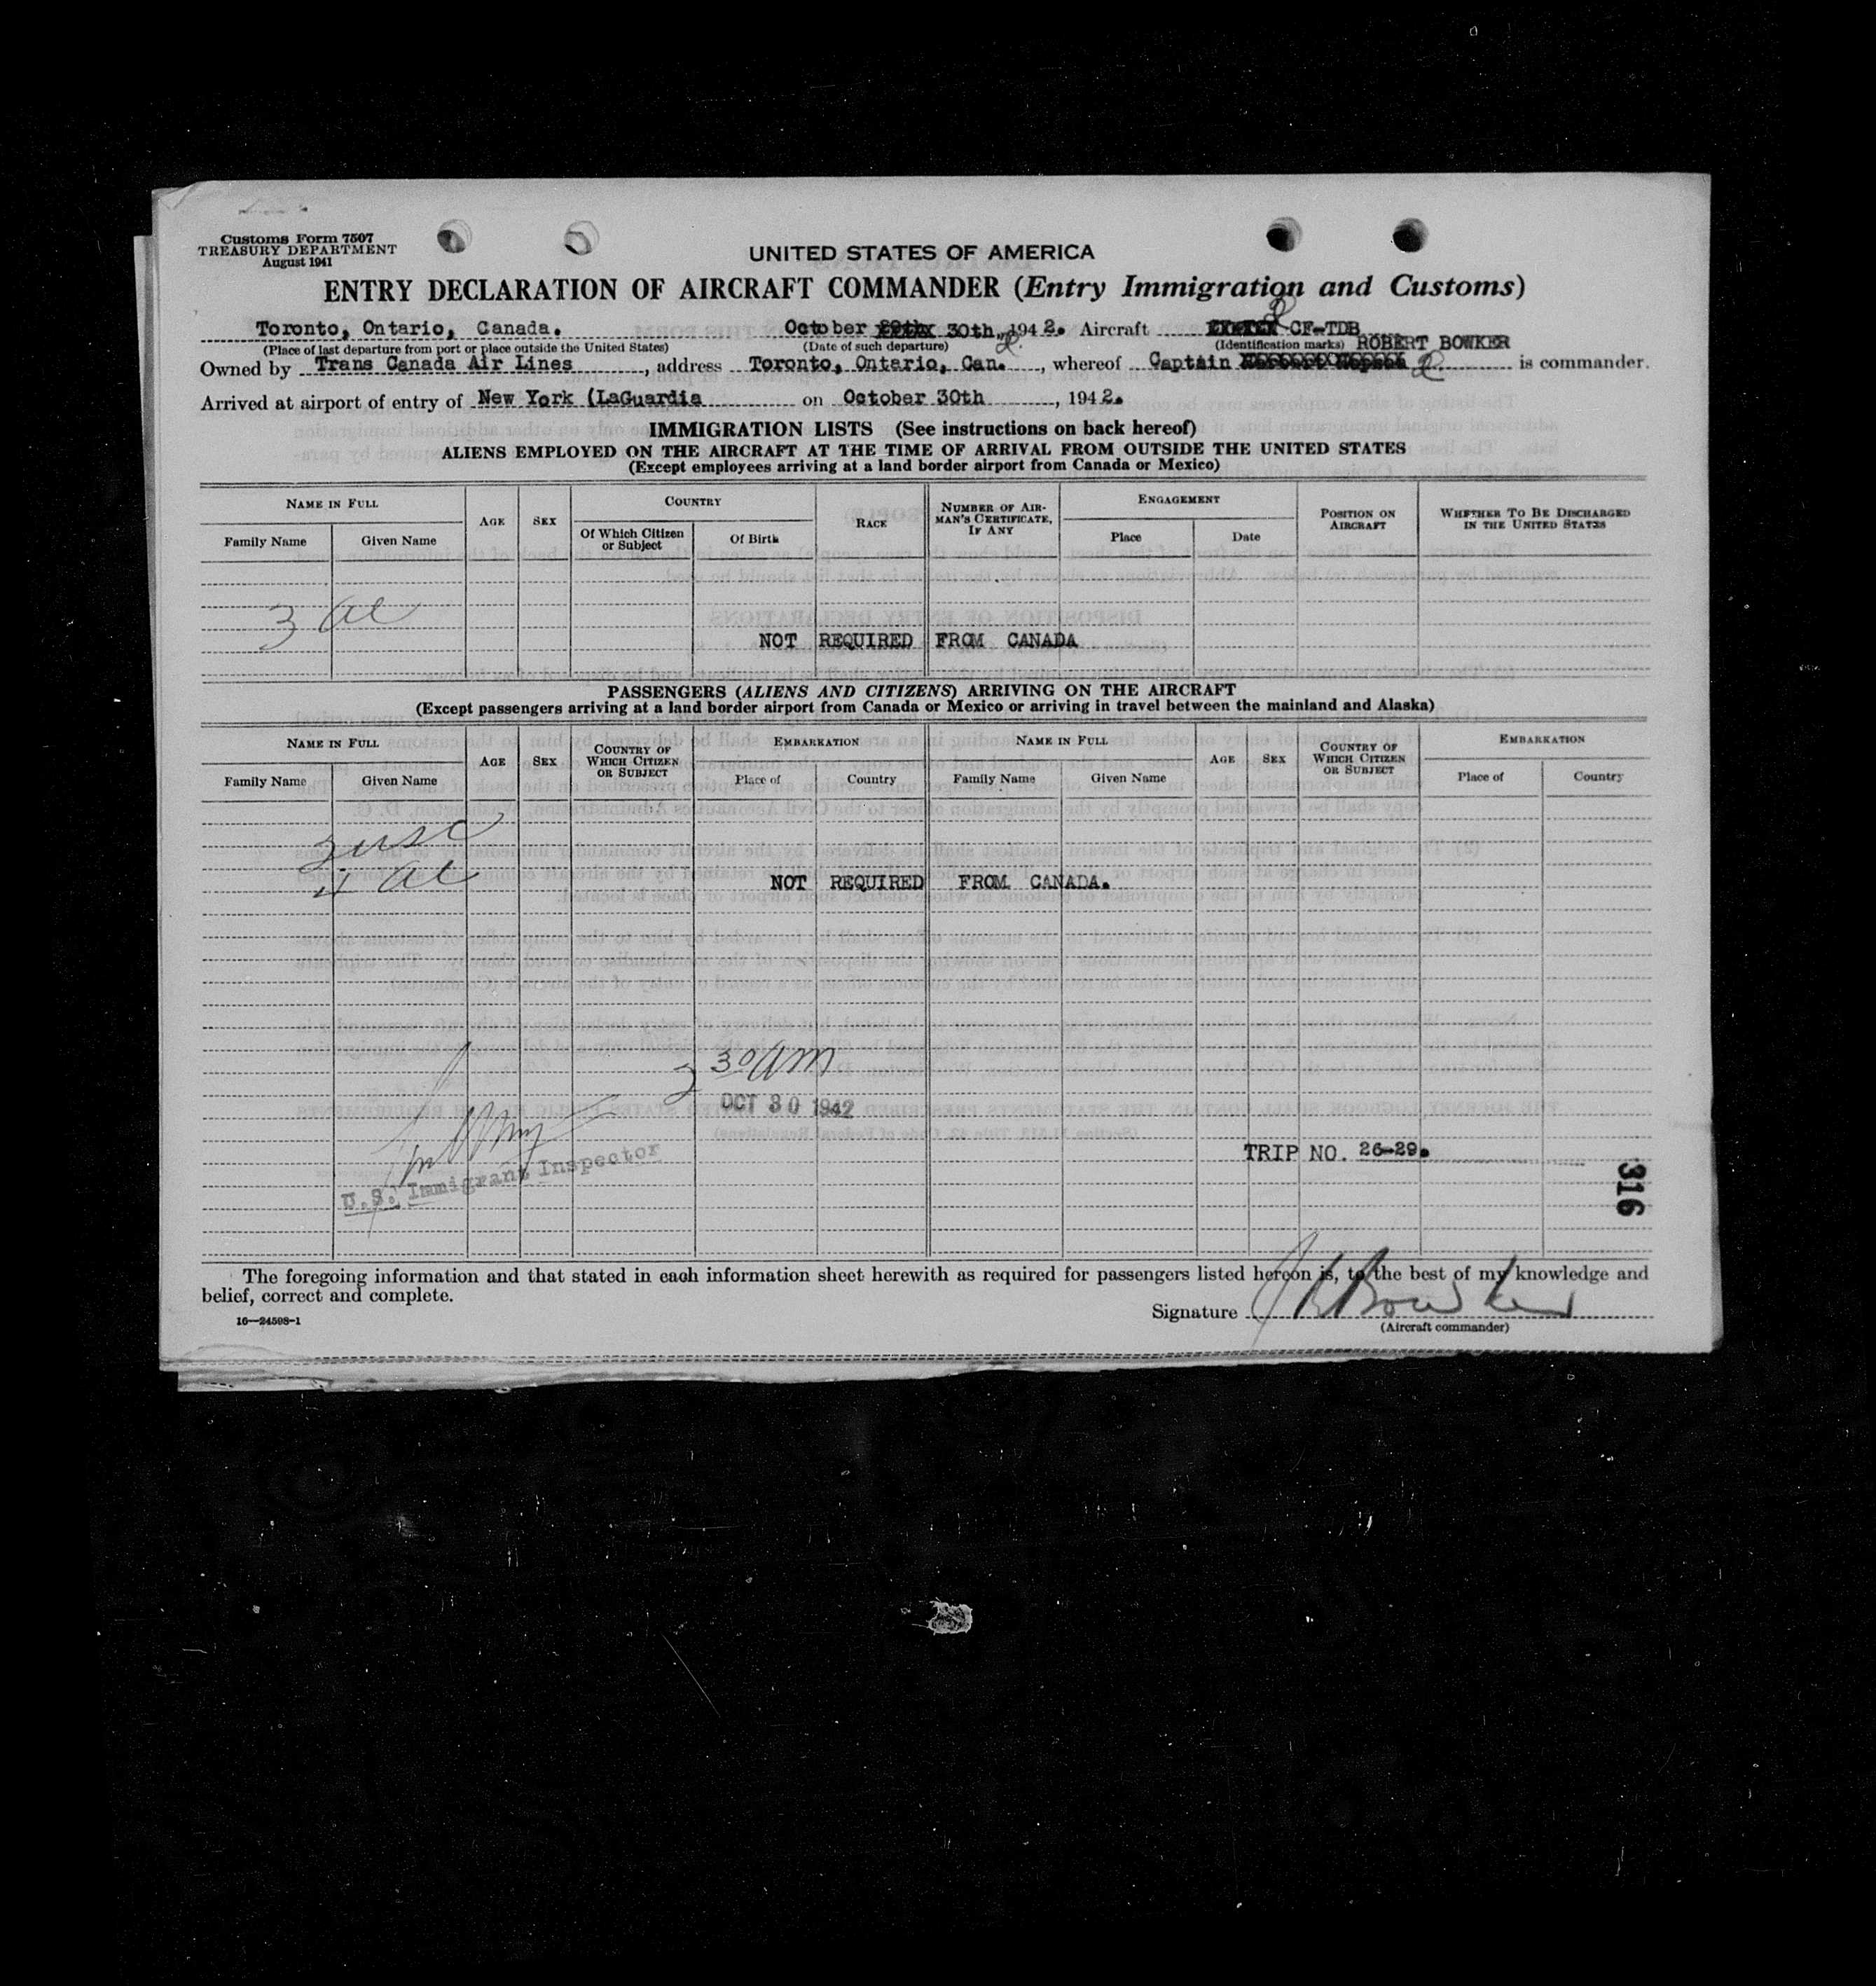 Customs Form 7507
TREASURY DEPARTMENT
August 1941
UNITED STATES OF AMERICA
ENTRY DECLARATION OF AIRCRAFT COMMANDER (Entry Immigration and Customs)
Toronto, Ontario, Canada. October 30th, 1942. Aircraft CF-TDB
(Place of last departure from port or place outside the United States) (Date of such departure) (Identification marks) ROBERT BOWKER
Owned by Trans Canada Air Lines, address Toronto, Ontario, Can., whereof Captain is commander.
Arrived at airport of entry of New York (LaGuardia on October 30th, 1942.
IMMIGRATION LISTS (See instructions on back hereof)
ALIENS EMPLOYED ON THE AIRCRAFT AT THE TIME OF ARRIVAL FROM OUTSIDE THE UNITED STATES
(Except employees arriving at a land border airport from Canada or Mexico)
NAME IN FULL AGE SEX COUNTRY RACE NUMBER OF AIRMAN'S CERTIFICATE, IF ANY ENGAGEMENT POSITION ON AIRCRAFT WHETHER TO BE DISCHARGED IN THE UNITED STATES
Family Name Given Name Of Which Citizen or Subject Of Birth Place Date
3 al
NOT REQUIRED FROM CANADA
PASSENGERS (ALIENS AND CITIZENS) ARRIVING ON THE AIRCRAFT
(Except passengers arriving at a land border airport from Canada or Mexico or arriving in travel between the mainland and Alaska)
NAME IN FULL AGE SEX COUNTRY OF WHICH CITIZEN OR SUBJECT EMBARKATION NAME IN FULL AGE SEX COUNTRY OF WHICH CITIZEN OR SUBJECT EMBARKATION
Family Name Given Name Place of Country Family Name Given Name Place of Country
3 usc
al
NOT REQUIRED FROM CANADA.
30 am
OCT 30 1942
U.S. Immigrant Inspector
TRIP NO. 26-29.
316
The foregoing information and that stated in each information sheet herewith as required for passengers listed hereon is, to the best of my knowledge and
belief, correct and complete.
Signature Bowker
16—24598-1
(Aircraft commander)